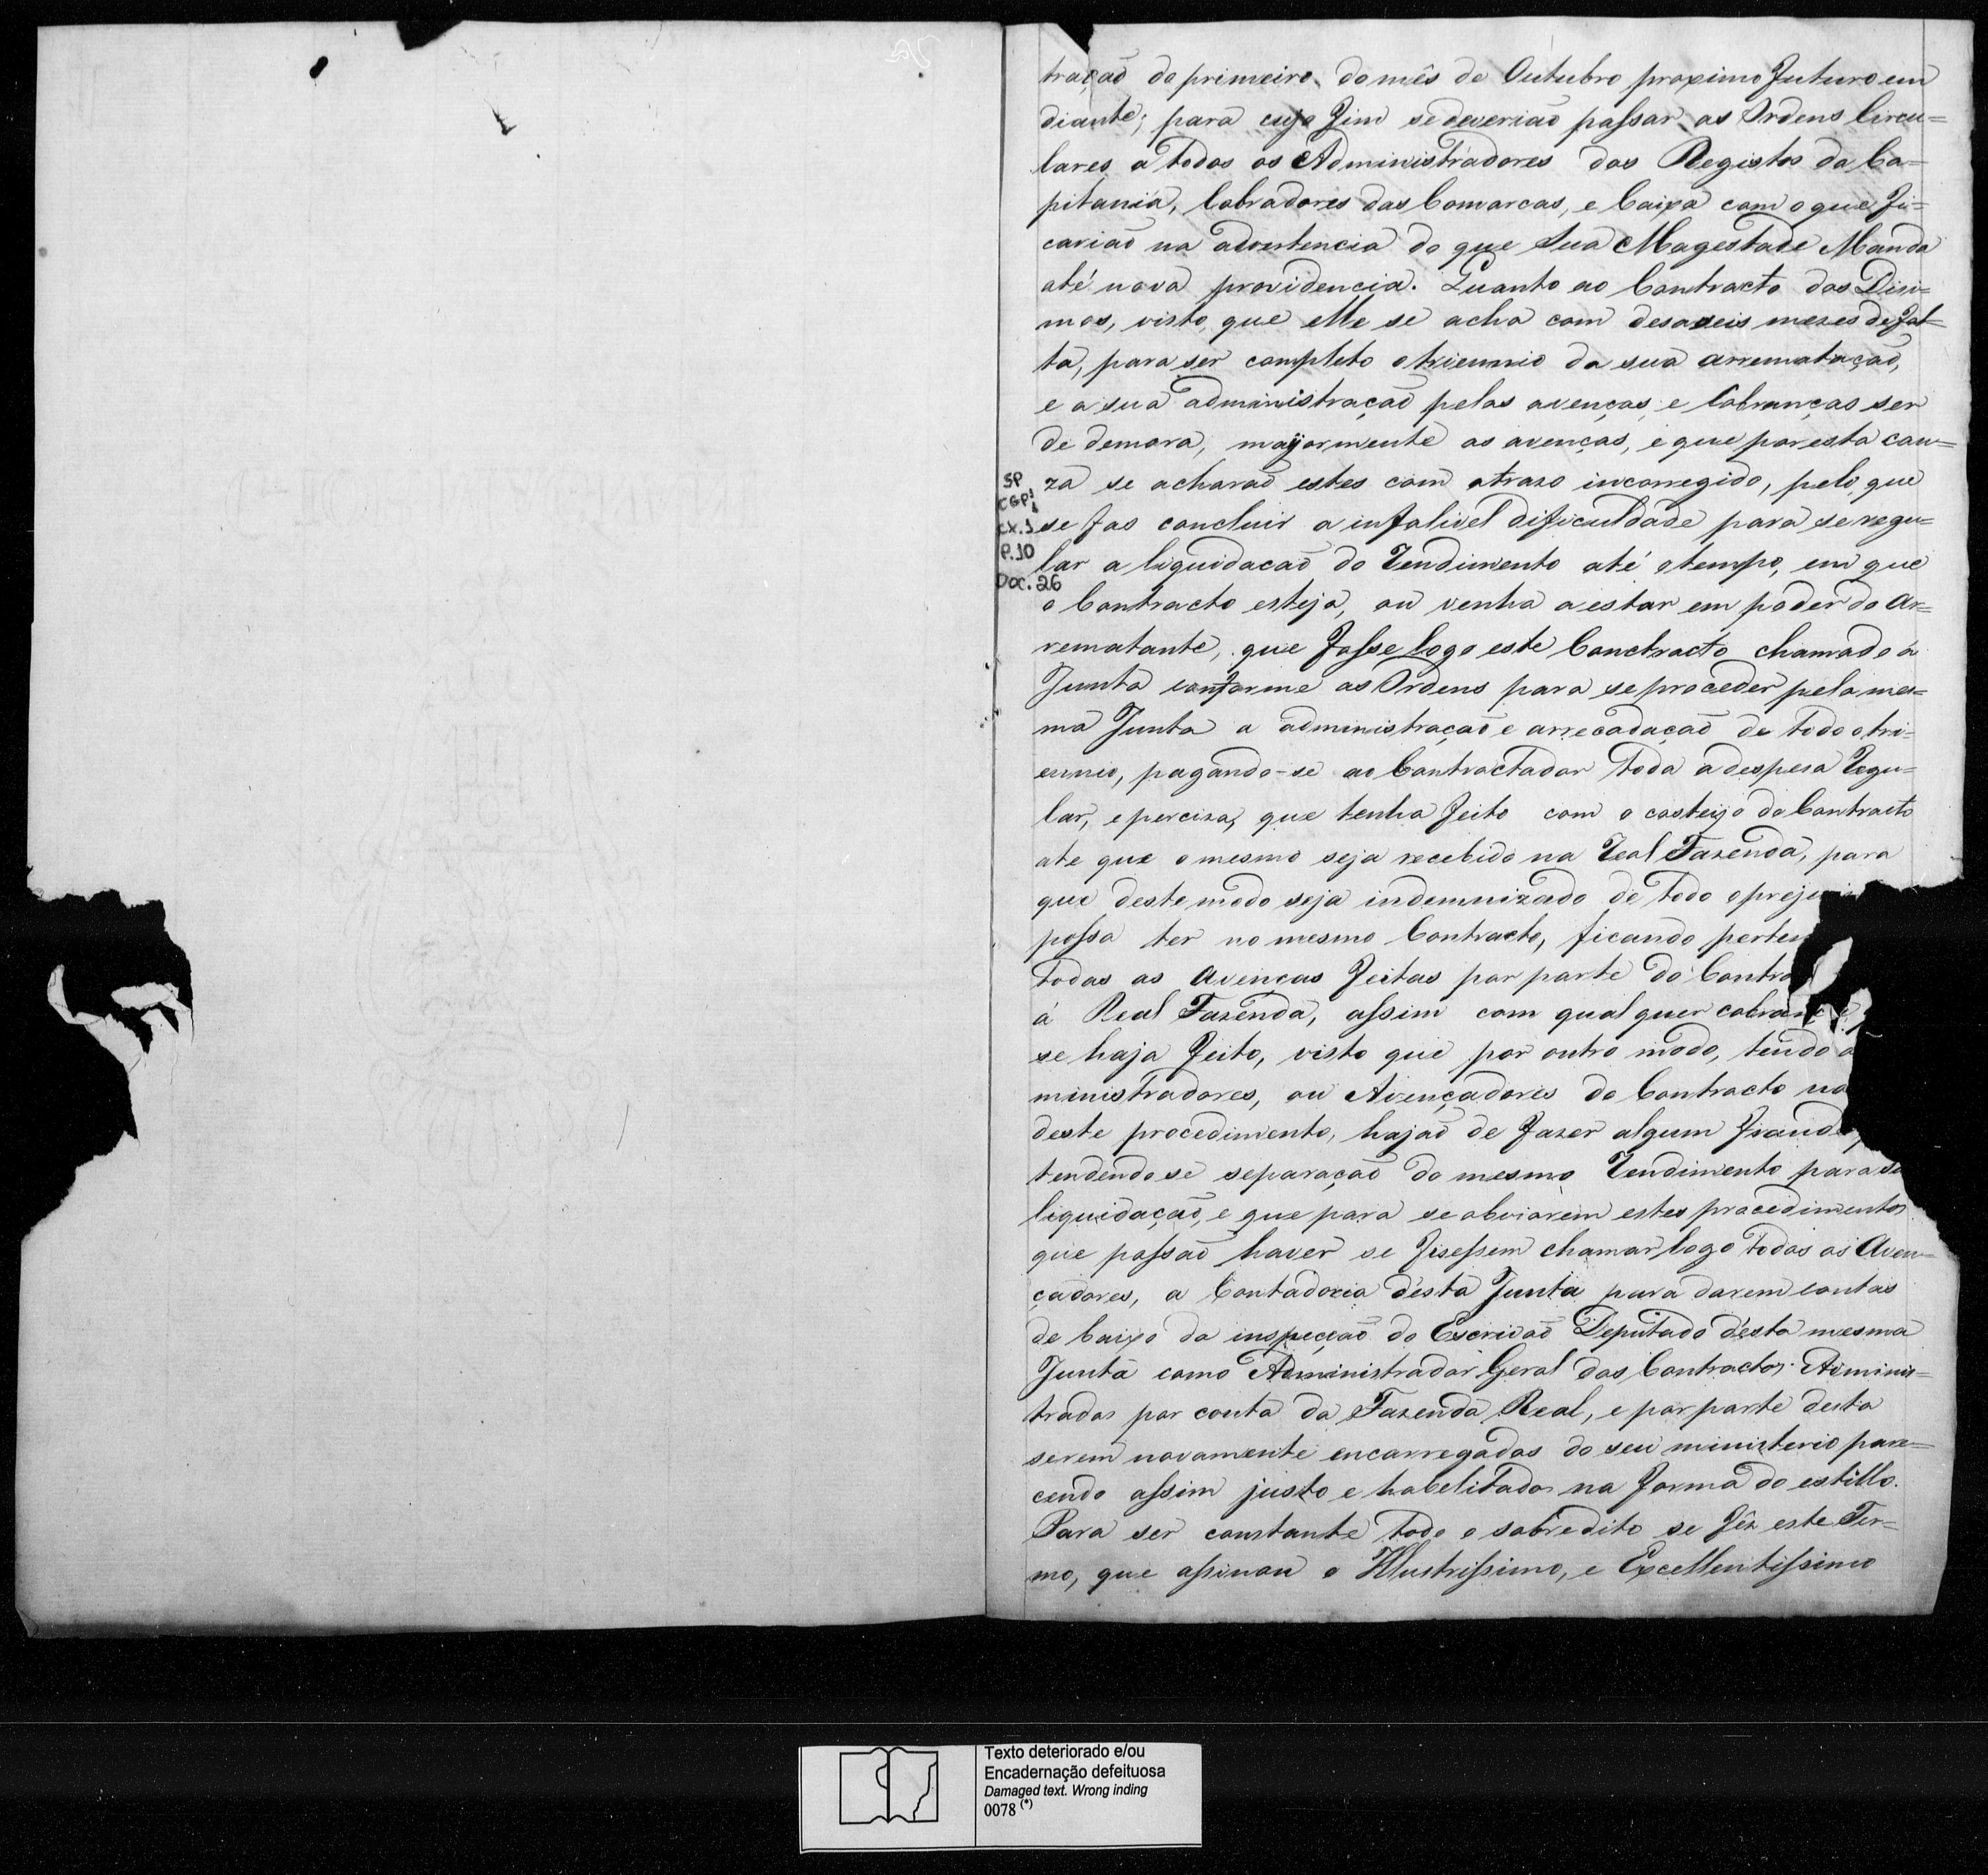 tração do primeiro do mês de Outubro proximo futuro em
diante; para cujo fim se deverião passar as Ordens Circu=
lares a todos os Administradores dos Registos da Ca=
pitania, Cobradores das Comarcas, e Caixa com o que fi=
carião na advertencia do que Sua Magestade Manda
até nova providencia. Quanto ao Contracto dos Disi=
mos, visto que elle se acha com desaseis mezes de fal=
ta, para ser completo o triennio da sua arrematação,
e a sua administração pelas avenças e Cobranças ser
de demora, mayormente as avenças, e que por esta cau=
za se acharaõ estes com atraso incorregido, pelo que
se fas concluir a infalivel dificuldade para se regu=
lar a liquidacaõ do Rendimento até o tempo, em que
o Contracto esteja, ou venha a estar em poder do Ar=
rematante, que fosse logo este Conctracto chamado á
Junta conforme as Ordens para se proceder pela mes=
ma Junta a administração e arrecadação de todo o tri=
ennio, pagando-se ao Contractador toda a despesa Regu=
lar, e perciza, que tenha feito com o casteijo do Contracto
ate que o mesmo seja recebido na Real Fazenda, para
que deste modo seja indemnizado de todo o preju
possa ter no mesmo Contracto, ficando perten
todas as Avenças feitas por parte do Contra
á Real Fazenda, assim com qual quer cobranc
se haja feito, visto que por outro modo, tendo a
ministradores, ou Avençadores do Contracto no
deste procedimento, hajaõ de fazer algum fraude
tendendose separação do mesmo Rendimento para se
liquidação, e que para se obviarem estes procedimentos
que possaõ haver se fisessem chamar logo todos os Aven=
çadores, a Contadoria désta Junta para darem contas
de baixo da inspecção do Escrivaõ Deputado désta mesma
Junta como Administrador Geral dos Contractos Adminis=
trados por conta da Fazenda Real, e por parte desta
serem novamente encarregados do seu ministerio pare=
cendo assim justo e habelitados na forma do estillo.
Para ser constante todo o sobredito se fêz este Ter=
mo, que assinou o Illustrissimo, e Excellentissimo
SP
CGP1
CX.1
P.10
Doc. 26
Texto deteriorado e/ou
Encadernação defeituosa
Damaged text. Wrong inding
0078 (*)